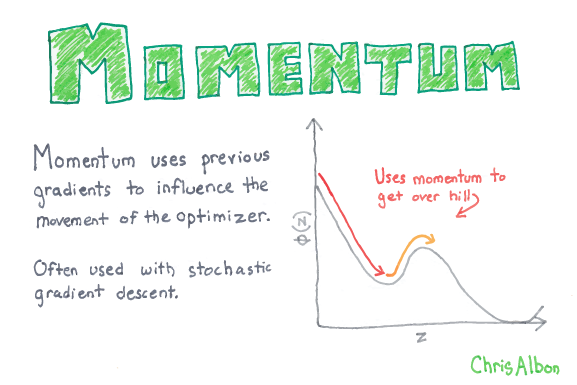 MOMENTUM
Momentum uses previous
gradients to influence the
movement of the optimizer.
Often used with stochastic
gradient descent.
Uses momentum to
get over hill
Φ(z)
z
Chris Albon